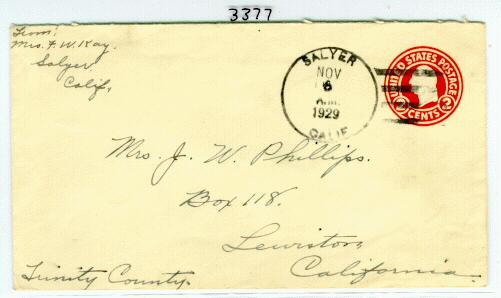 3377
From:
Mrs. F. W. Kay.
Salyer,
Calif.
SALYER
NOV
6
A.M.
1929
CALIF.
UNITED STATES POSTAGE
2 CENTS 2
Mrs. J. W. Phillips.
Box 118.
Lewiston,
Trinity County.
California.